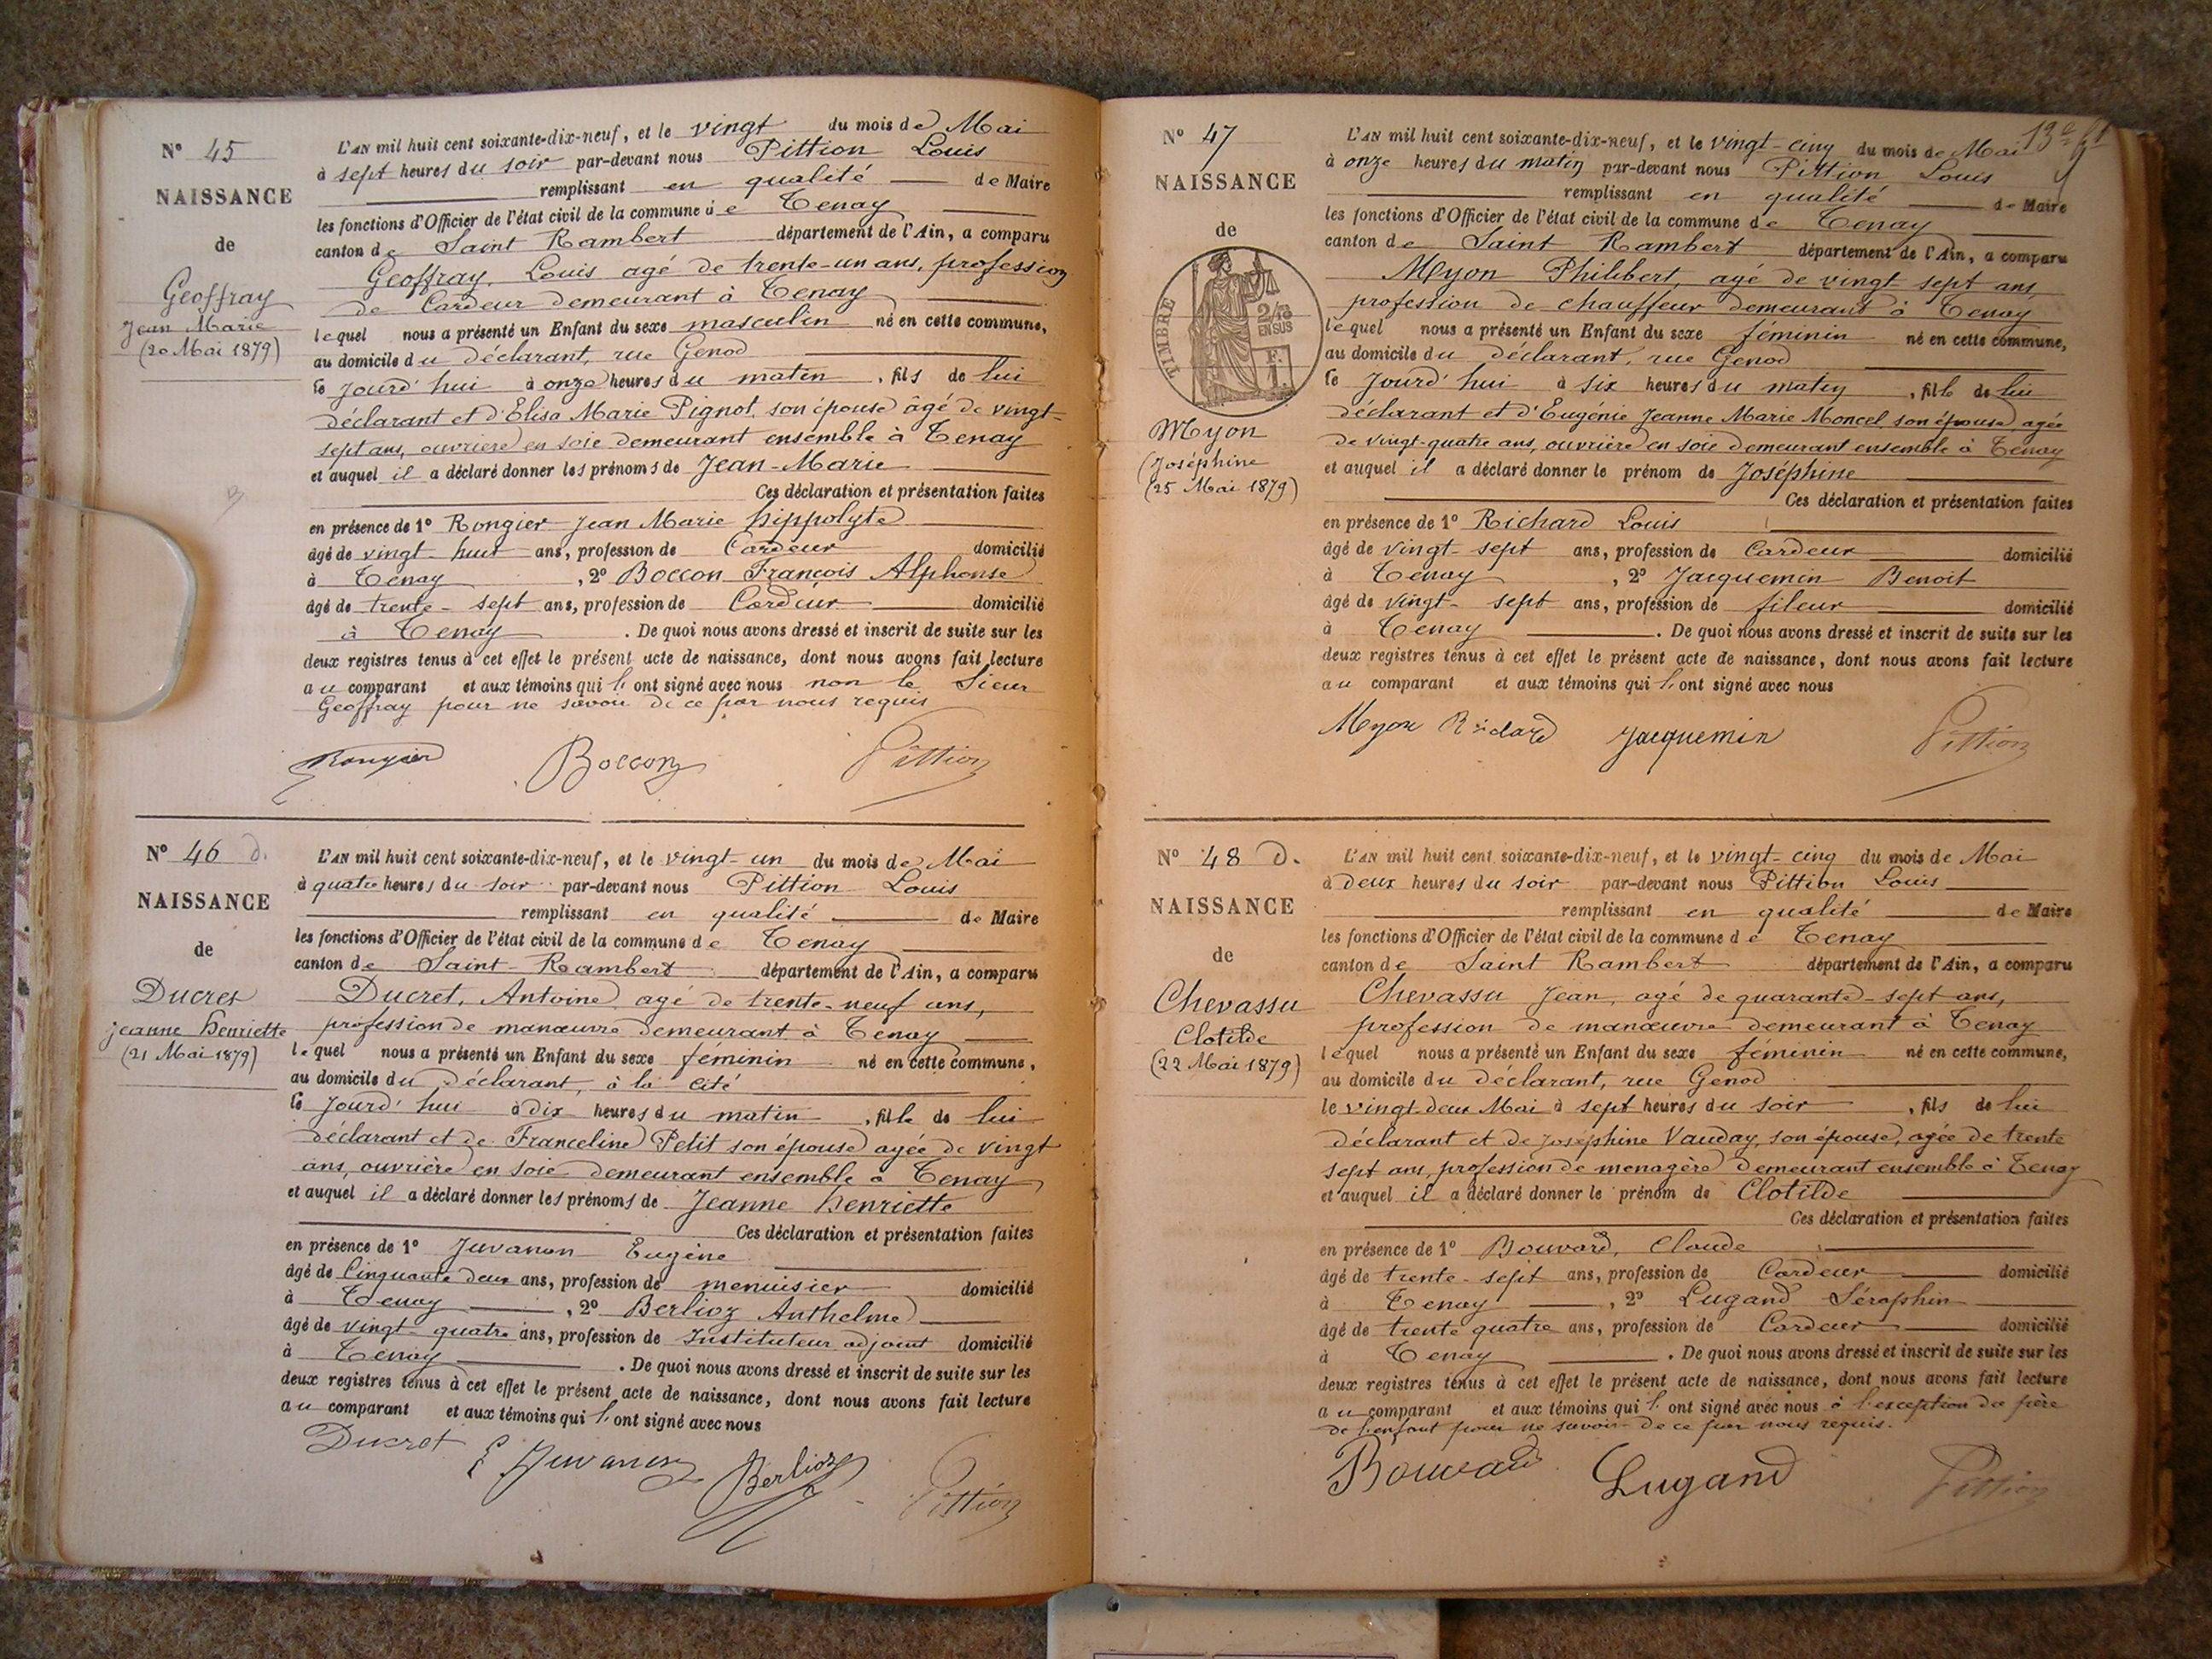 N° 45
NAISSANCE
de
Geoffray
Jean Marie
(20 Mai 1879)
L'AN mil huit cent soixante-dix-neuf, et le vingt du mois de Mai
à sept heures du soir par-devant nous Pittion Louis
remplissant en qualité de Maire
les fonctions d'Officier de l'état civil de la commune de Tenay
canton de Saint Rambert département de l'Ain, a comparu
Geoffray, Louis agé de trente-un ans, profession
de Cardeur demeurant à Tenay
lequel nous a présenté un Enfant du sexe masculin né en cette commune,
au domicile du déclarant, rue Genod
le jourd'hui à onze heures du matin, fils de lui
déclarant et d'Elisa Marie Pignot, son épouse âgé de vingt-
sept ans, ouvrière en soie demeurant ensemble à Tenay
et auquel il a déclaré donner les prénoms de Jean-Marie
Ces déclaration et présentation faites
en présence de 1° Rongier Jean Marie hippolyte
âgé de vingt-huit ans, profession de Cardeur domicilié
à Tenay, 2° Boccon François Alphonse
âgé de trente-sept ans, profession de Cardeur domicilié
à Tenay. De quoi nous avons dressé et inscrit de suite sur les
deux registres tenus à cet effet le présent acte de naissance, dont nous avons fait lecture
au comparant et aux témoins qui l'ont signé avec nous non le Sieur
Geoffray pour ne savoir de ce par nous requis
Rongier Boccon Pittion
N° 46 d.
NAISSANCE
de
Ducret
jeanne henriette
(21 Mai 1879)
L'AN mil huit cent soixante-dix-neuf, et le vingt-un du mois de Mai
à quatre heures du soir par-devant nous Pittion Louis
remplissant en qualité de Maire
les fonctions d'Officier de l'état civil de la commune de Tenay
canton de Saint-Rambert département de l'Ain, a comparu
Ducret, Antoine agé de trente-neuf ans,
profession de manœuvre demeurant à Tenay
lequel nous a présenté un Enfant du sexe féminin né en cette commune,
au domicile du déclarant, à la cité
le jourd'hui à dix heures du matin, fille de lui
déclarant et de Franceline Petit son épouse agée de vingt
ans, ouvrière en soie demeurant ensemble à Tenay
et auquel il a déclaré donner les prénoms de Jeanne henriette
Ces déclaration et présentation faites
en présence de 1° Juvanon Eugène
âgé de Cinquante deux ans, profession de menuisier domicilié
à Tenay, 2° Berlioz Anthelme
âgé de vingt-quatre ans, profession de Instituteur adjoint domicilié
à Tenay. De quoi nous avons dressé et inscrit de suite sur les
deux registres tenus à cet effet le présent acte de naissance, dont nous avons fait lecture
au comparant et aux témoins qui l'ont signé avec nous
Ducret E Juvanon Berlioz Pittion
N° 47
NAISSANCE
de
TIMBRE 2/10 EN SUS F. 1.
Myon
(Joséphine
(25 Mai 1879)
L'AN mil huit cent soixante-dix-neuf, et le vingt-cinq du mois de Mai
à onze heures du matin par-devant nous Pittion Louis
remplissant en qualité de Maire
les fonctions d'Officier de l'état civil de la commune de Tenay
canton de Saint Rambert département de l'Ain, a comparu
Myon Philibert, agé de vingt sept ans
profession de chauffeur demeurant à Tenay
lequel nous a présenté un Enfant du sexe féminin né en cette commune,
au domicile du déclarant, rue Genod
le jourd'hui à six heures du matin, fille de lui
déclarant et d'Eugénie Jeanne Marie Moncel son épouse agée
de vingt-quatre ans, ouvrière en soie demeurant ensemble à Tenay
et auquel il a déclaré donner le prénom de Joséphine
Ces déclaration et présentation faites
en présence de 1° Richard Louis
âgé de vingt-sept ans, profession de Cardeur domicilié
à Tenay, 2° Jacquemin Benoit
âgé de vingt-sept ans, profession de fileur domicilié
à Tenay. De quoi nous avons dressé et inscrit de suite sur les
deux registres tenus à cet effet le présent acte de naissance, dont nous avons fait lecture
au comparant et aux témoins qui l'ont signé avec nous
Myon Richard Jacquemin Pittion
N° 48 d.
NAISSANCE
de
Chevassu
Clotilde
(22 Mai 1879)
L'AN mil huit cent soixante-dix-neuf, et le vingt-cinq du mois de Mai
à deux heures du soir par-devant nous Pittion Louis
remplissant en qualité de Maire
les fonctions d'Officier de l'état civil de la commune de Tenay
canton de Saint Rambert département de l'Ain, a comparu
Chevassu Jean, agé de quarante-sept ans,
profession de manœuvre demeurant à Tenay
lequel nous a présenté un Enfant du sexe féminin né en cette commune,
au domicile du déclarant, rue Genod
le vingt-deux Mai à sept heures du soir, fils de lui
déclarant et de Joséphine Vauday, son épouse, agée de trente
sept ans, profession de menagère demeurant ensemble à Tenay
et auquel il a déclaré donner le prénom de Clotilde
Ces déclaration et présentation faites
en présence de 1° Bouvard, Claude
âgé de trente-sept ans, profession de Cardeur domicilié
à Tenay, 2° Lugand Séraphin
âgé de trente quatre ans, profession de Cardeur domicilié
à Tenay. De quoi nous avons dressé et inscrit de suite sur les
deux registres tenus à cet effet le présent acte de naissance, dont nous avons fait lecture
au comparant et aux témoins qui l'ont signé avec nous à l'exception du père
de l'enfant pour ne savoir de ce par nous requis.
Bouvard Lugand Pittion